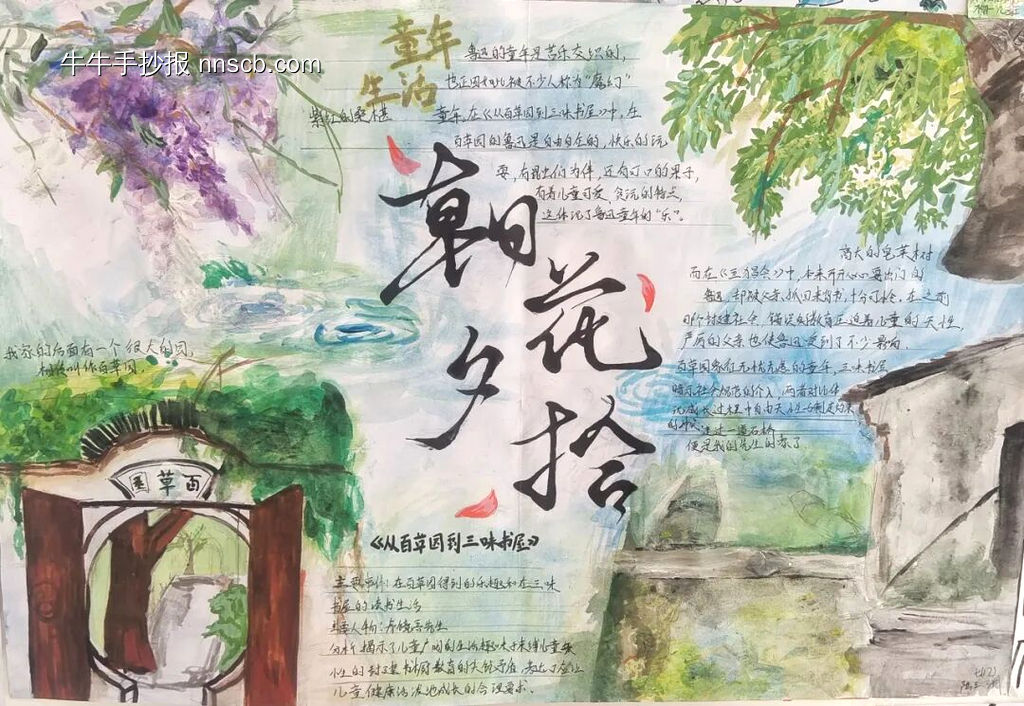 牛牛手抄报 nnscb.com
童年
生活
鲁迅的童年是苦乐交织的,
也正因如此被不少人称为"魔幻"
紫红的桑椹
童年,在《从百草园到三味书屋》中,在
百草园的鲁迅是自由自在的,快乐的玩
耍,有昆虫们为伴,还有可口的果子,
有着儿童可爱,贪玩的特点,
这体现了鲁迅童年的"乐"。
朝花夕拾
高大的皂荚树
而在《五猖会》中,本来开开心心要出门的
鲁迅,却被父亲抓回来背书,十分可怜,在之前
那个封建社会,错误的教育压迫着儿童的天性,
严厉的父亲也使鲁迅受到了不少影响.
百草园象征无忧无虑的童年,三味书屋
暗示社会规范的介入,两者对比体
现成长过程中自由天性与制度约束
的冲突
走过一道石桥
便是我的先生的家了
我家的后面有一个很大的园,
相传叫作百草园.
百草园
《从百草园到三味书屋》
主要事件:在百草园得到的乐趣和在三味
书屋的读书生活
主要人物:寿镜吾先生
分析:揭示了儿童广阔的生活趣味与束缚儿童天
性的封建书塾教育的尖锐矛盾,表达了应让
儿童健康活泼地成长的合理要求.
七(2)